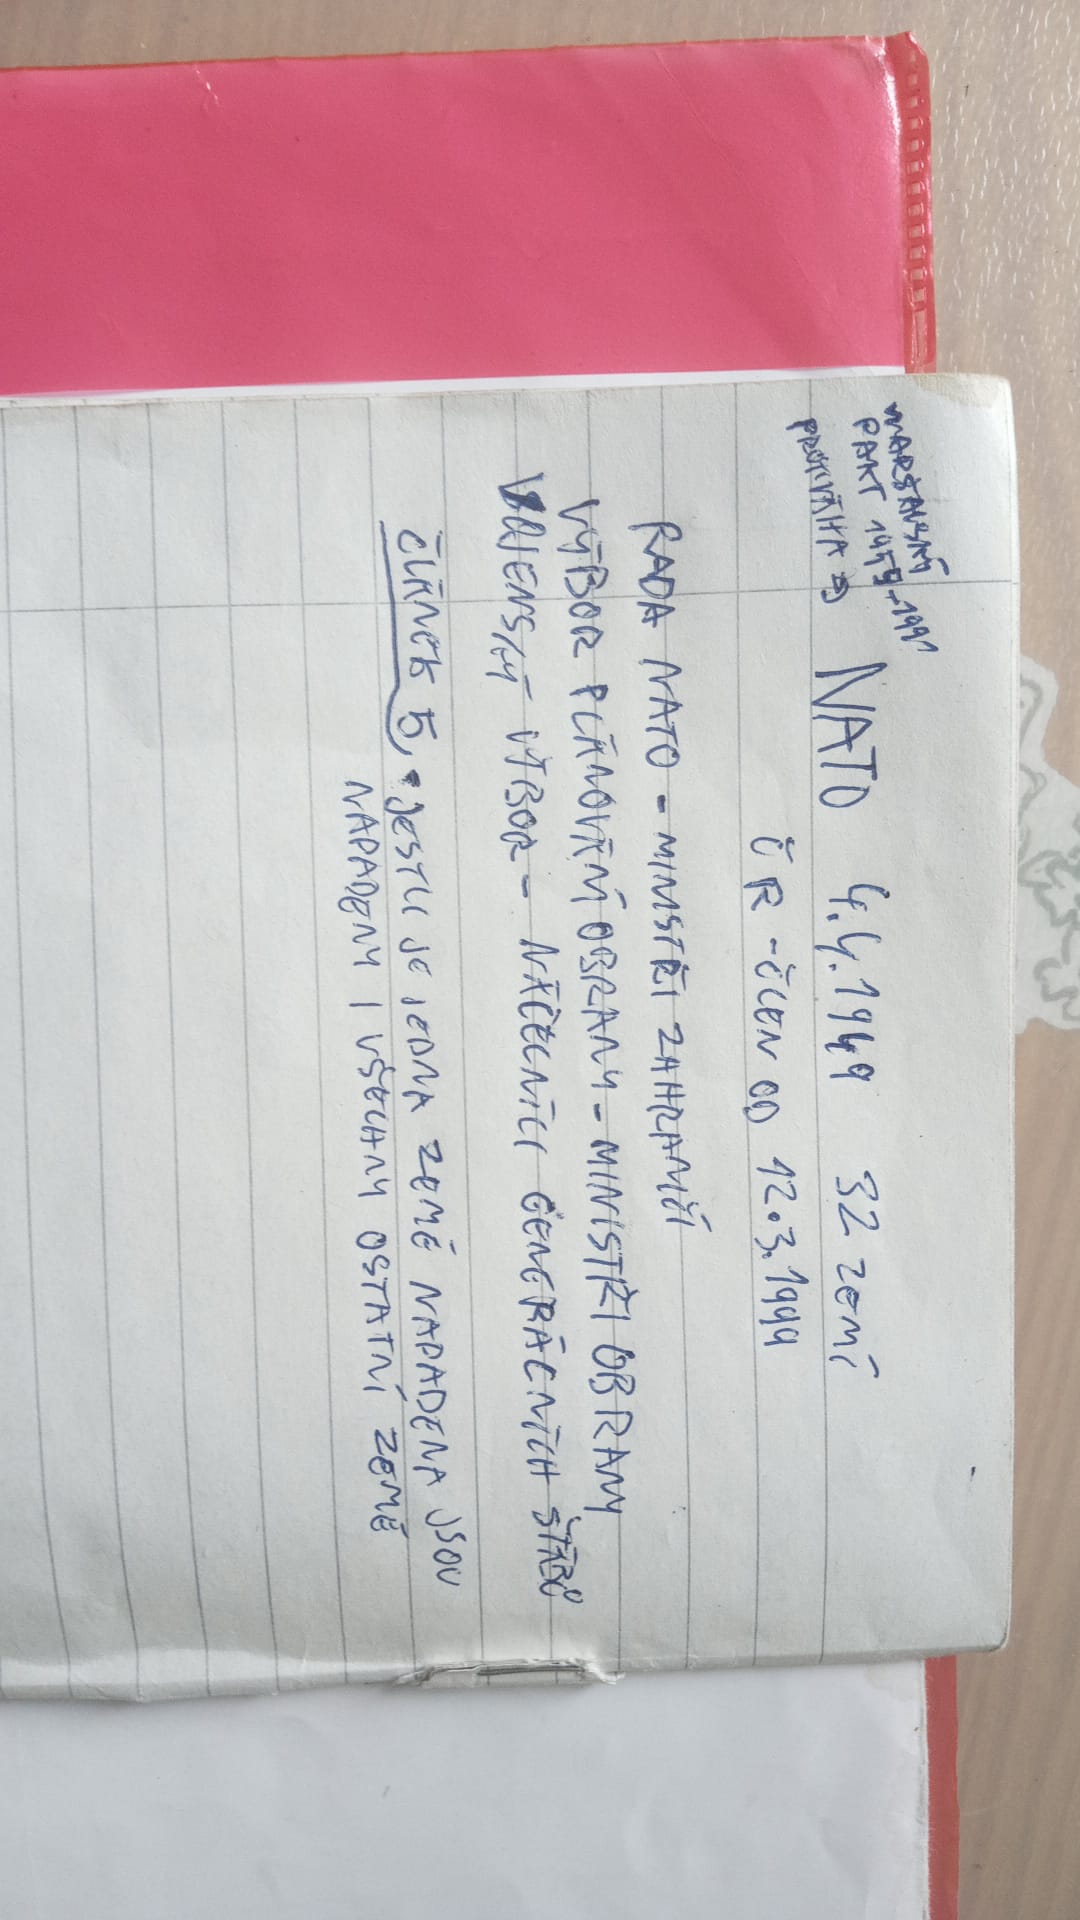 WARŠAVSKÝ
PAKT 1955-1991
PROTIVÁHA → NATO 4.4.1949 32 ZEMÍ
ČR - ČLEN OD 12.3.1999
RADA NATO - MINISTŘI ZAHRANIČÍ
VÝBOR PLÁNOVÁNÍ OBRANY - MINISTŘI OBRANY
VOJENSKÝ VÝBOR - NÁČELNÍCI GENERÁLNÍCH ŠTÁBŮ
ČLÁNEK 5, • JESTLI JE JEDNA ZEMĚ NAPADENA JSOU
NAPADENY I VŠECHNY OSTATNÍ ZEMĚ